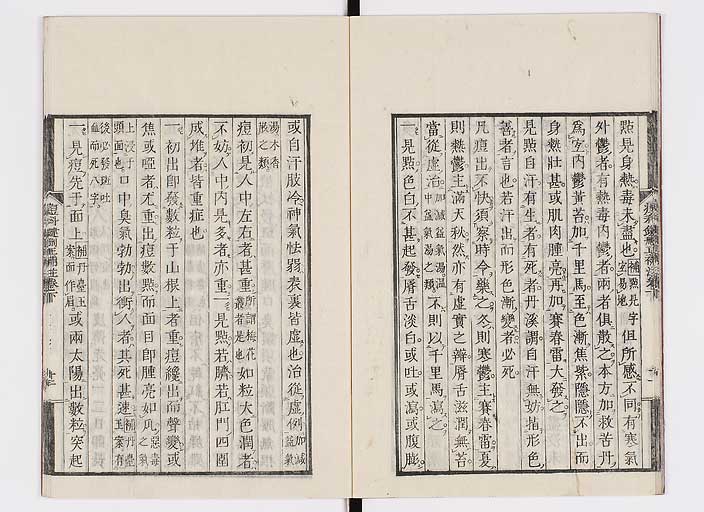 點見身熱毒未盡也補點見字宜易地但所感不同有寒氣
外鬱者有熱毒內鬱者兩者俱散之本方加救苦丹
為室內鬱黃芩加千里馬至色漸焦紫隱隱不出而
身熱壯甚或肌肉腫亮再加賽春雷大發之
見點自汗有生者有死者丹溪謂自汗無妨指形色
善者言也若汗出而形色漸變者必死
凡痘出不快須察時令藥之冬則寒鬱主賽春雷夏
則熱鬱主滿天秋然亦有虛實之辨脣舌滋潤無苔
當從虛治加減益氣湯溫中益氣湯之類不則以千里馬瀉之
一見點色白不甚起發脣舌淡白或吐或瀉或腹膨
或自汗肢冷神氣怯弱表裏皆虛也治從虛例加減益氣
湯木香散之類
痘初見人中左右者甚重所謂梅花叢者是也如粒大色潤者
不妨人中內見多者亦重一見點若臍若肛門四圍
成堆者皆重症也
一初出即發數粒于山根上者重痘纔出而聲變或
焦或啞者尤重出痘數點而面目即腫亮如瓜惡毒之氣
上浸于頭面也口中臭氣勃勃出衝人者其死甚速補丹臺玉案有
後必發斑吐血而死八字
一見痘先于面上補丹臺玉案面作眉或兩太陽出數粒突起